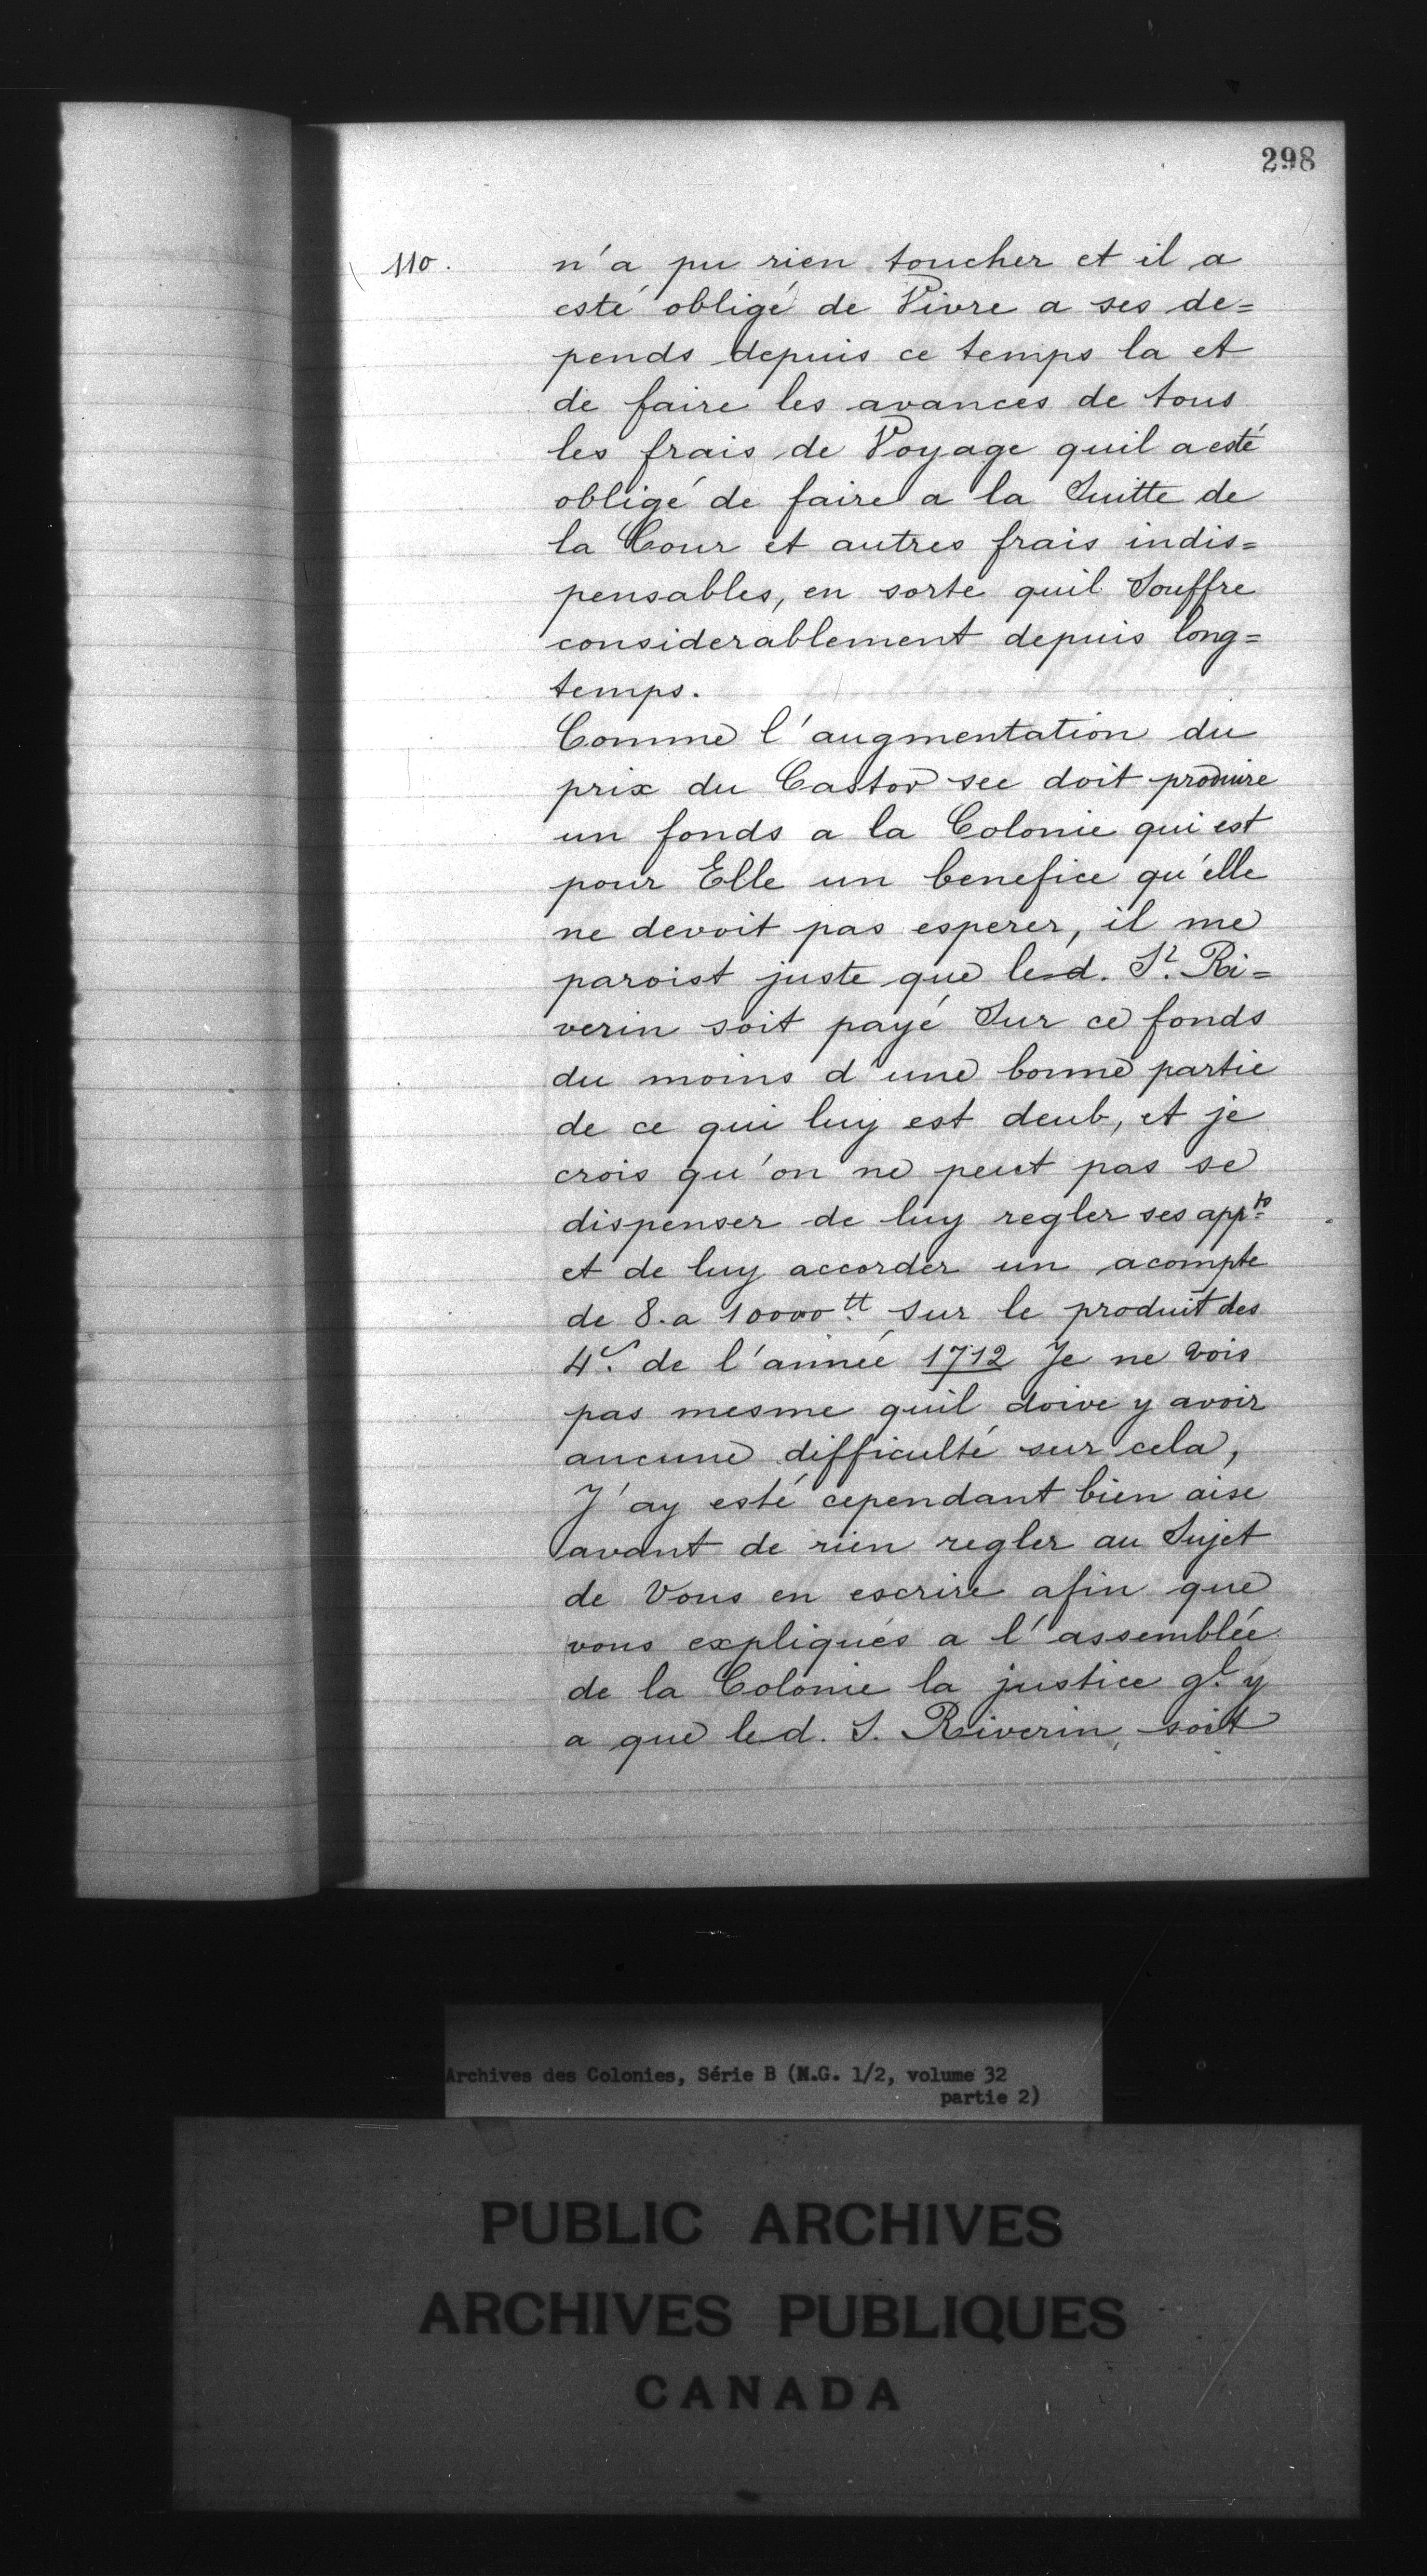 298
110.
n'a pu rien toucher et il a
esté obligé de Vivre a ses de=
pends depuis ce temps la et
de faire les avances de tous
les frais de Voyage quil a esté
obligé de faire a la Suitte de
la Cour et autres frais indis=
pensables, en sorte quil Souffre
considerablement depuis long=
temps.
Comme l'augmentation du
prix du Castor sec doit produire
un fonds a la Colonie qui est
pour Elle un benefice qu'elle
ne devoit pas esperer, il me
paroist juste que led. Sr. Ri=
verin soit payé Sur ce fonds
du moins d'une bonne partie
de ce qui luy est deub, et je
crois qu'on ne peut pas se
dispenser de luy regler ses appts
et de luy accorder un acompte
de 8. a 10000tt. Sur le produit des
4s. de l'année 1712 Je ne vois
pas mesme quil doive y avoir
aucune difficulté sur cela,
J'ay esté cependant bien aise
avant de rien regler au Sujet
de Vous en escrire afin que
vous expliqués a l'assemblée
de la Colonie la justice ql. y
a que led. S. Riverin, soit
Archives des Colonies, Série B (M.G. 1/2, volume 32
partie 2)
PUBLIC ARCHIVES
ARCHIVES PUBLIQUES
CANADA